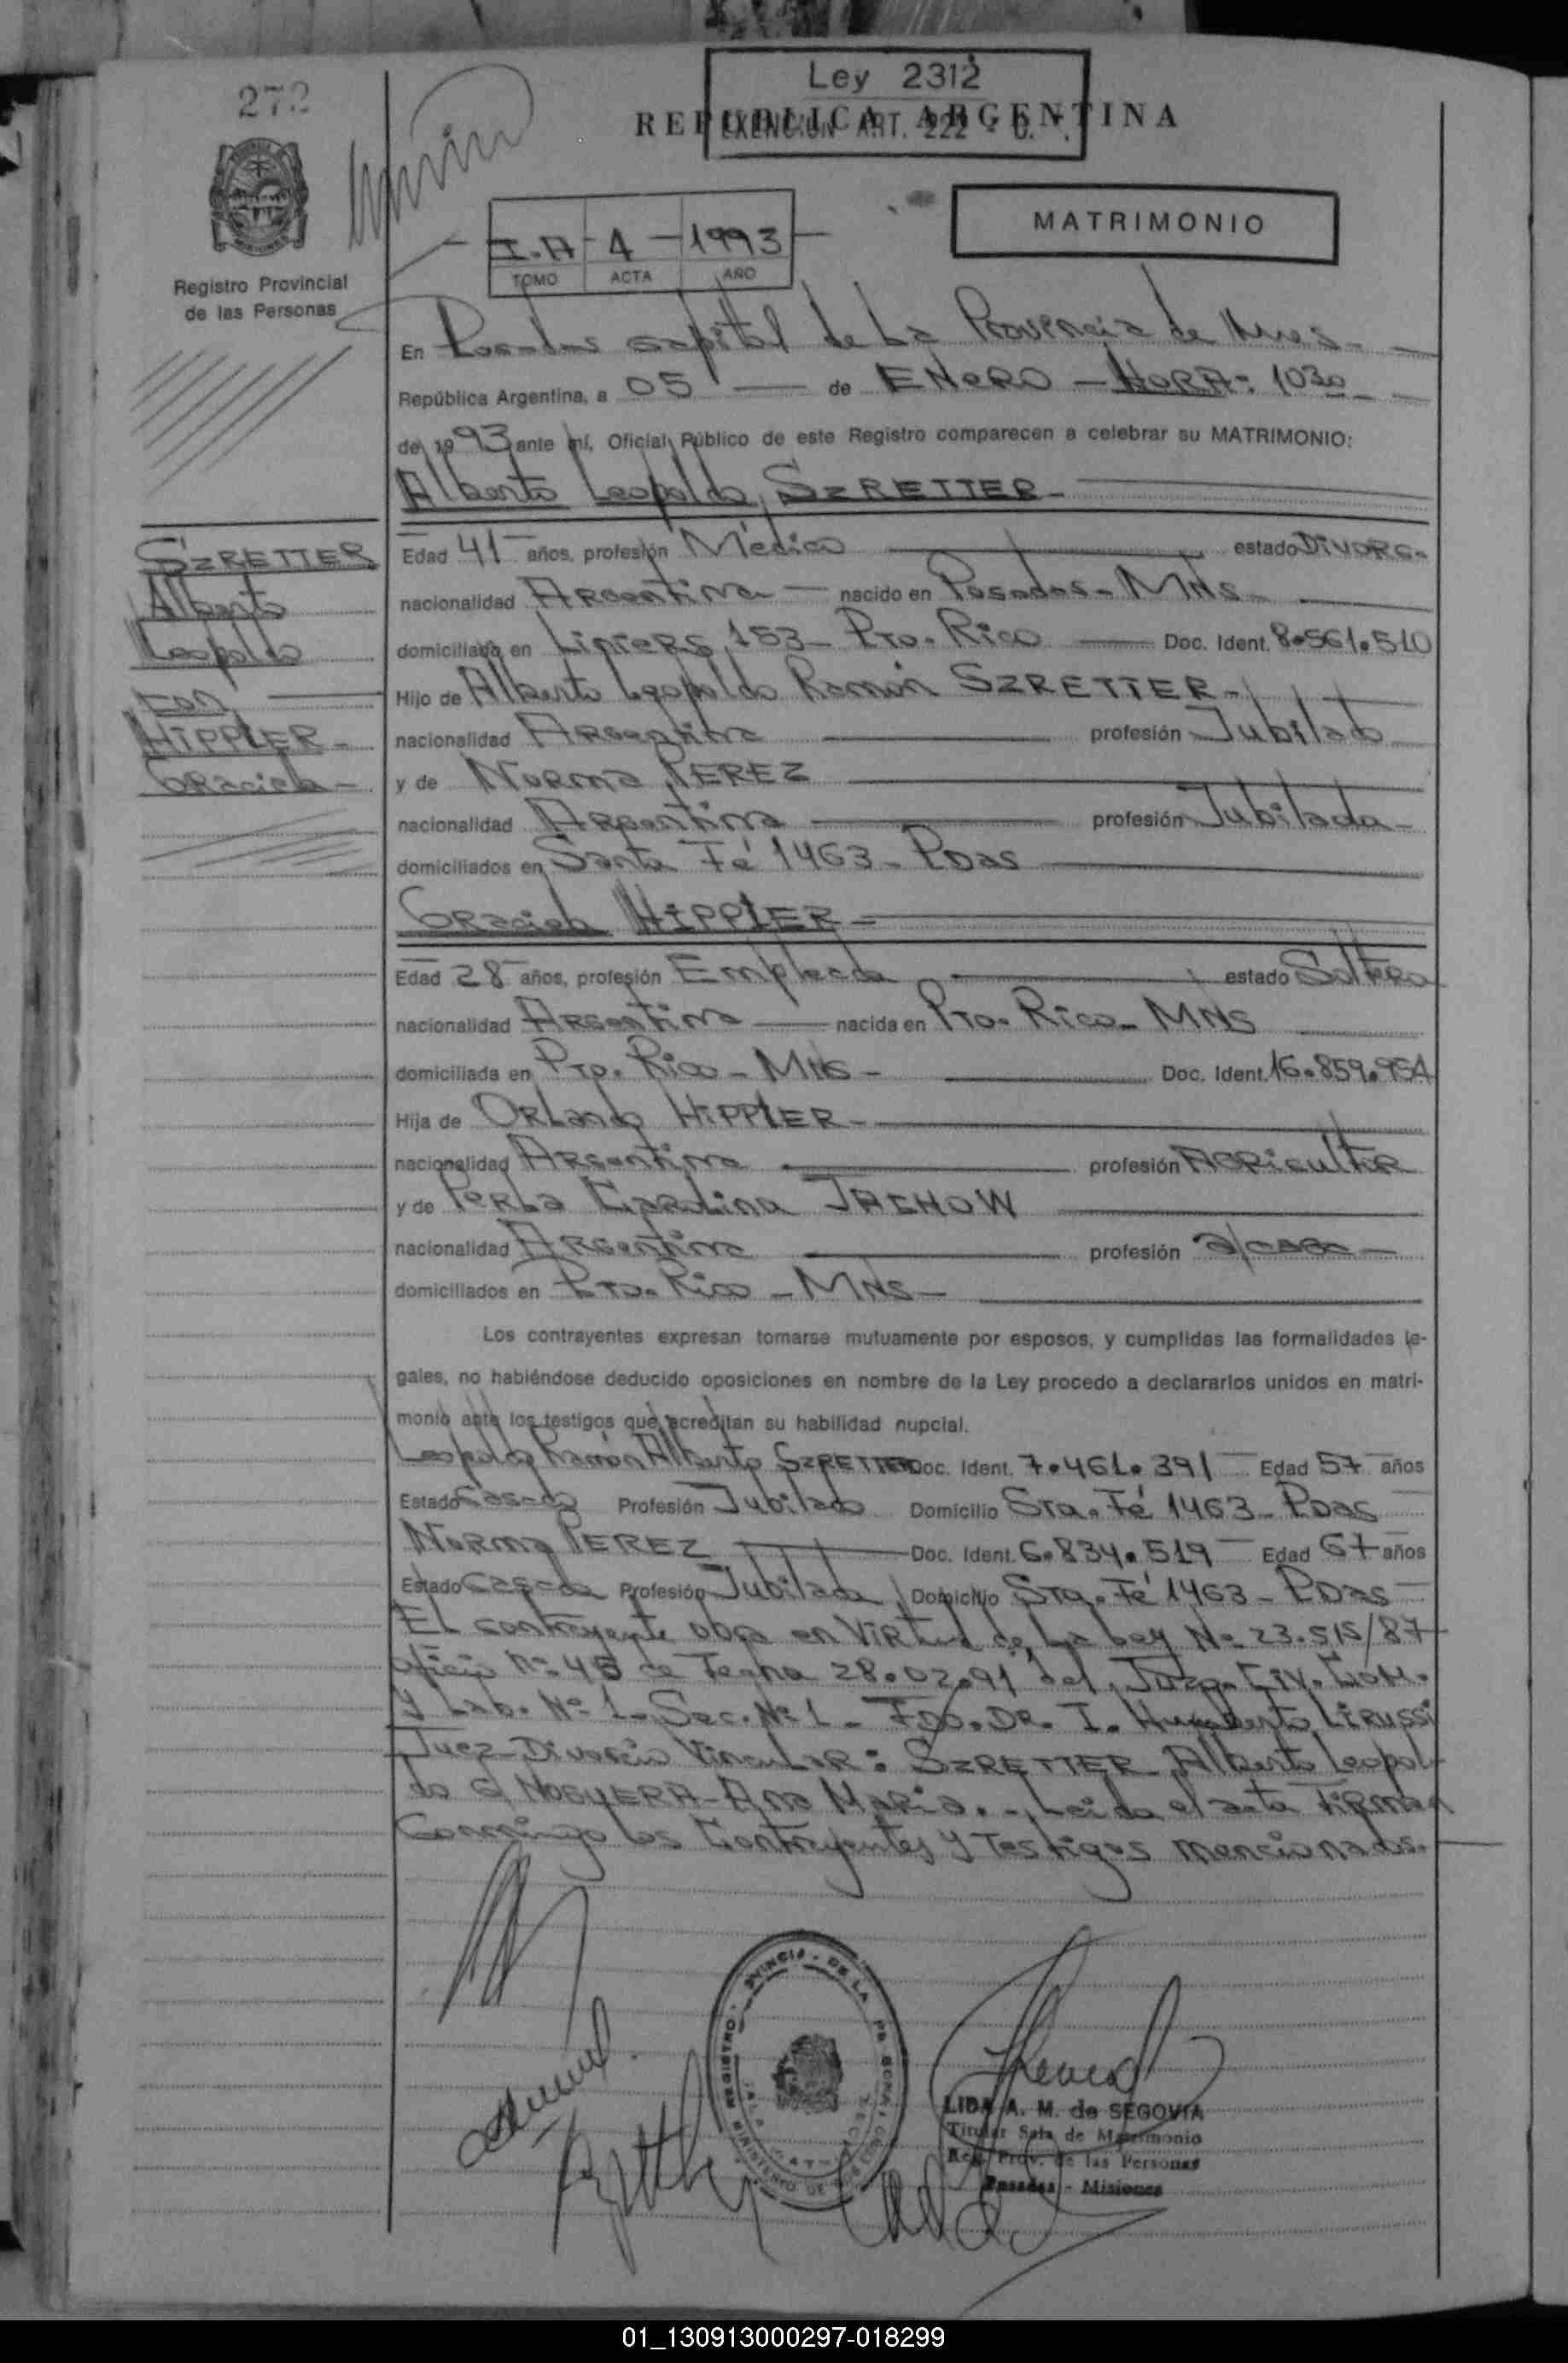 272
Ley 2312
REPUBLICA ARGENTINA
EXENCION ART. 222
MATRIMONIO
I.A - 4 - 1993
TOMO ACTA AÑO
Registro Provincial
de las Personas
En Posadas capital de La Provincia de Mnes.
República Argentina, a 05 de ENERO - HORA: 1030
de 1993 ante mí, Oficial Público de este Registro comparecen a celebrar su MATRIMONIO:
Alberto Leopoldo SZRETTER
SZRETTER
Alberto
Leopoldo
con
HIPPLER
Graciela
Edad 41 años, profesión Médico estado Divorc.
nacionalidad Argentina nacido en Posadas - MNS
domiciliado en Liniers 153 - Pto. Rico Doc. Ident. 8.561.510
Hijo de Alberto Leopoldo Ramón SZRETTER
nacionalidad Argentina profesión Jubilado
y de Norma PEREZ
nacionalidad Argentina profesión Jubilada
domiciliados en Santa Fé 1463 - Pdas
Graciela HIPPLER
Edad 28 años, profesión Empleada estado Soltera
nacionalidad Argentina nacida en Pto. Rico - MNS
domiciliada en Pto. Rico - MNS - Doc. Ident. 16.859.954
Hija de Orlando HIPPLER
nacionalidad Argentina profesión Agricultor
y de Perla Carolina JACHOW
nacionalidad Argentina profesión a/casa
domiciliados en Pto. Rico - MNS
Los contrayentes expresan tomarse mutuamente por esposos, y cumplidas las formalidades le-
gales, no habiéndose deducido oposiciones en nombre de la Ley procedo a declararlos unidos en matri-
monio ante los testigos que acreditan su habilidad nupcial.
Leopoldo Ramón Alberto SZRETTER Doc. Ident. 7.461.391 Edad 57 años
Estado Casado Profesión Jubilado Domicilio Sta. Fé 1463 - Pdas
Norma PEREZ Doc. Ident. 6.834.519 Edad 67 años
Estado Casada Profesión Jubilada Domicilio Sta. Fé 1463 - Pdas
El contrayente obra en Virtud de La Ley Nº 23.515/87
oficio Nº 45 de Fecha 28.02.91 del Juzg. Civ. Com.
y Lab. Nº 1 - Sec. Nº 1 - FDO. DR. I. Humberto Lirussi
Juez - Divorcio Vincular: SZRETTER Alberto Leopol-
do c/ NOGUERA - Ana Maria. - Leida el acta Firman
Conmigo los Contrayentes y Testigos mencionados.
LIDA A. M. de SEGOVIA
Titular Sala de Matrimonio
Reg. Prov. de las Personas
Posadas - Misiones
01_130913000297-018299